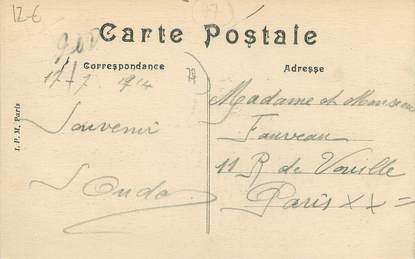 12€
Carte Postale
Correspondance
Adresse
17-7 1914
Souvenir
Madame et Monsieur
Fauveau
11 R de Vouille
Paris XX =
I. P. M, Paris